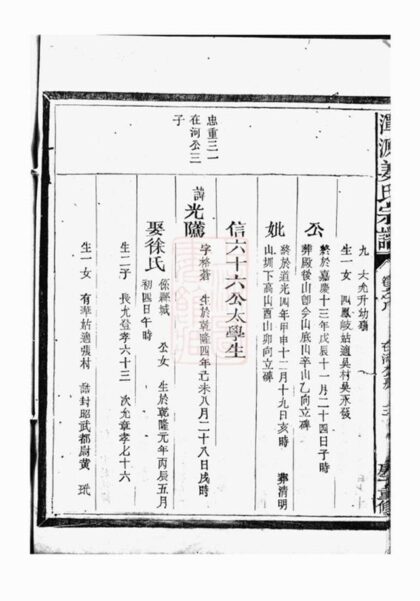 潭源姜氏宗譜
九 大允升幼殤
生一女 四鳳岐姑適吳村吳永發
公 終於嘉慶十三年戊辰十一月二十四日子時
葬殿後山卽今山底山辛山乙向立碑
妣 終於道光四年甲申十二月十九亥時 葬清明
山圳下高山酉山卯向立碑
信六十六公太學生
諱光騰 字格蒼 生於乾隆四年己未八月二十八日戌時
娶徐氏 係縣城 公女 生於乾隆元年丙辰五月
初四日午時
生二子 長允登孝六十三 次允章孝七十六
生一女 有華姑適張村 誥封昭武都尉黄 玳
忠重三一
在河公三
子
重修